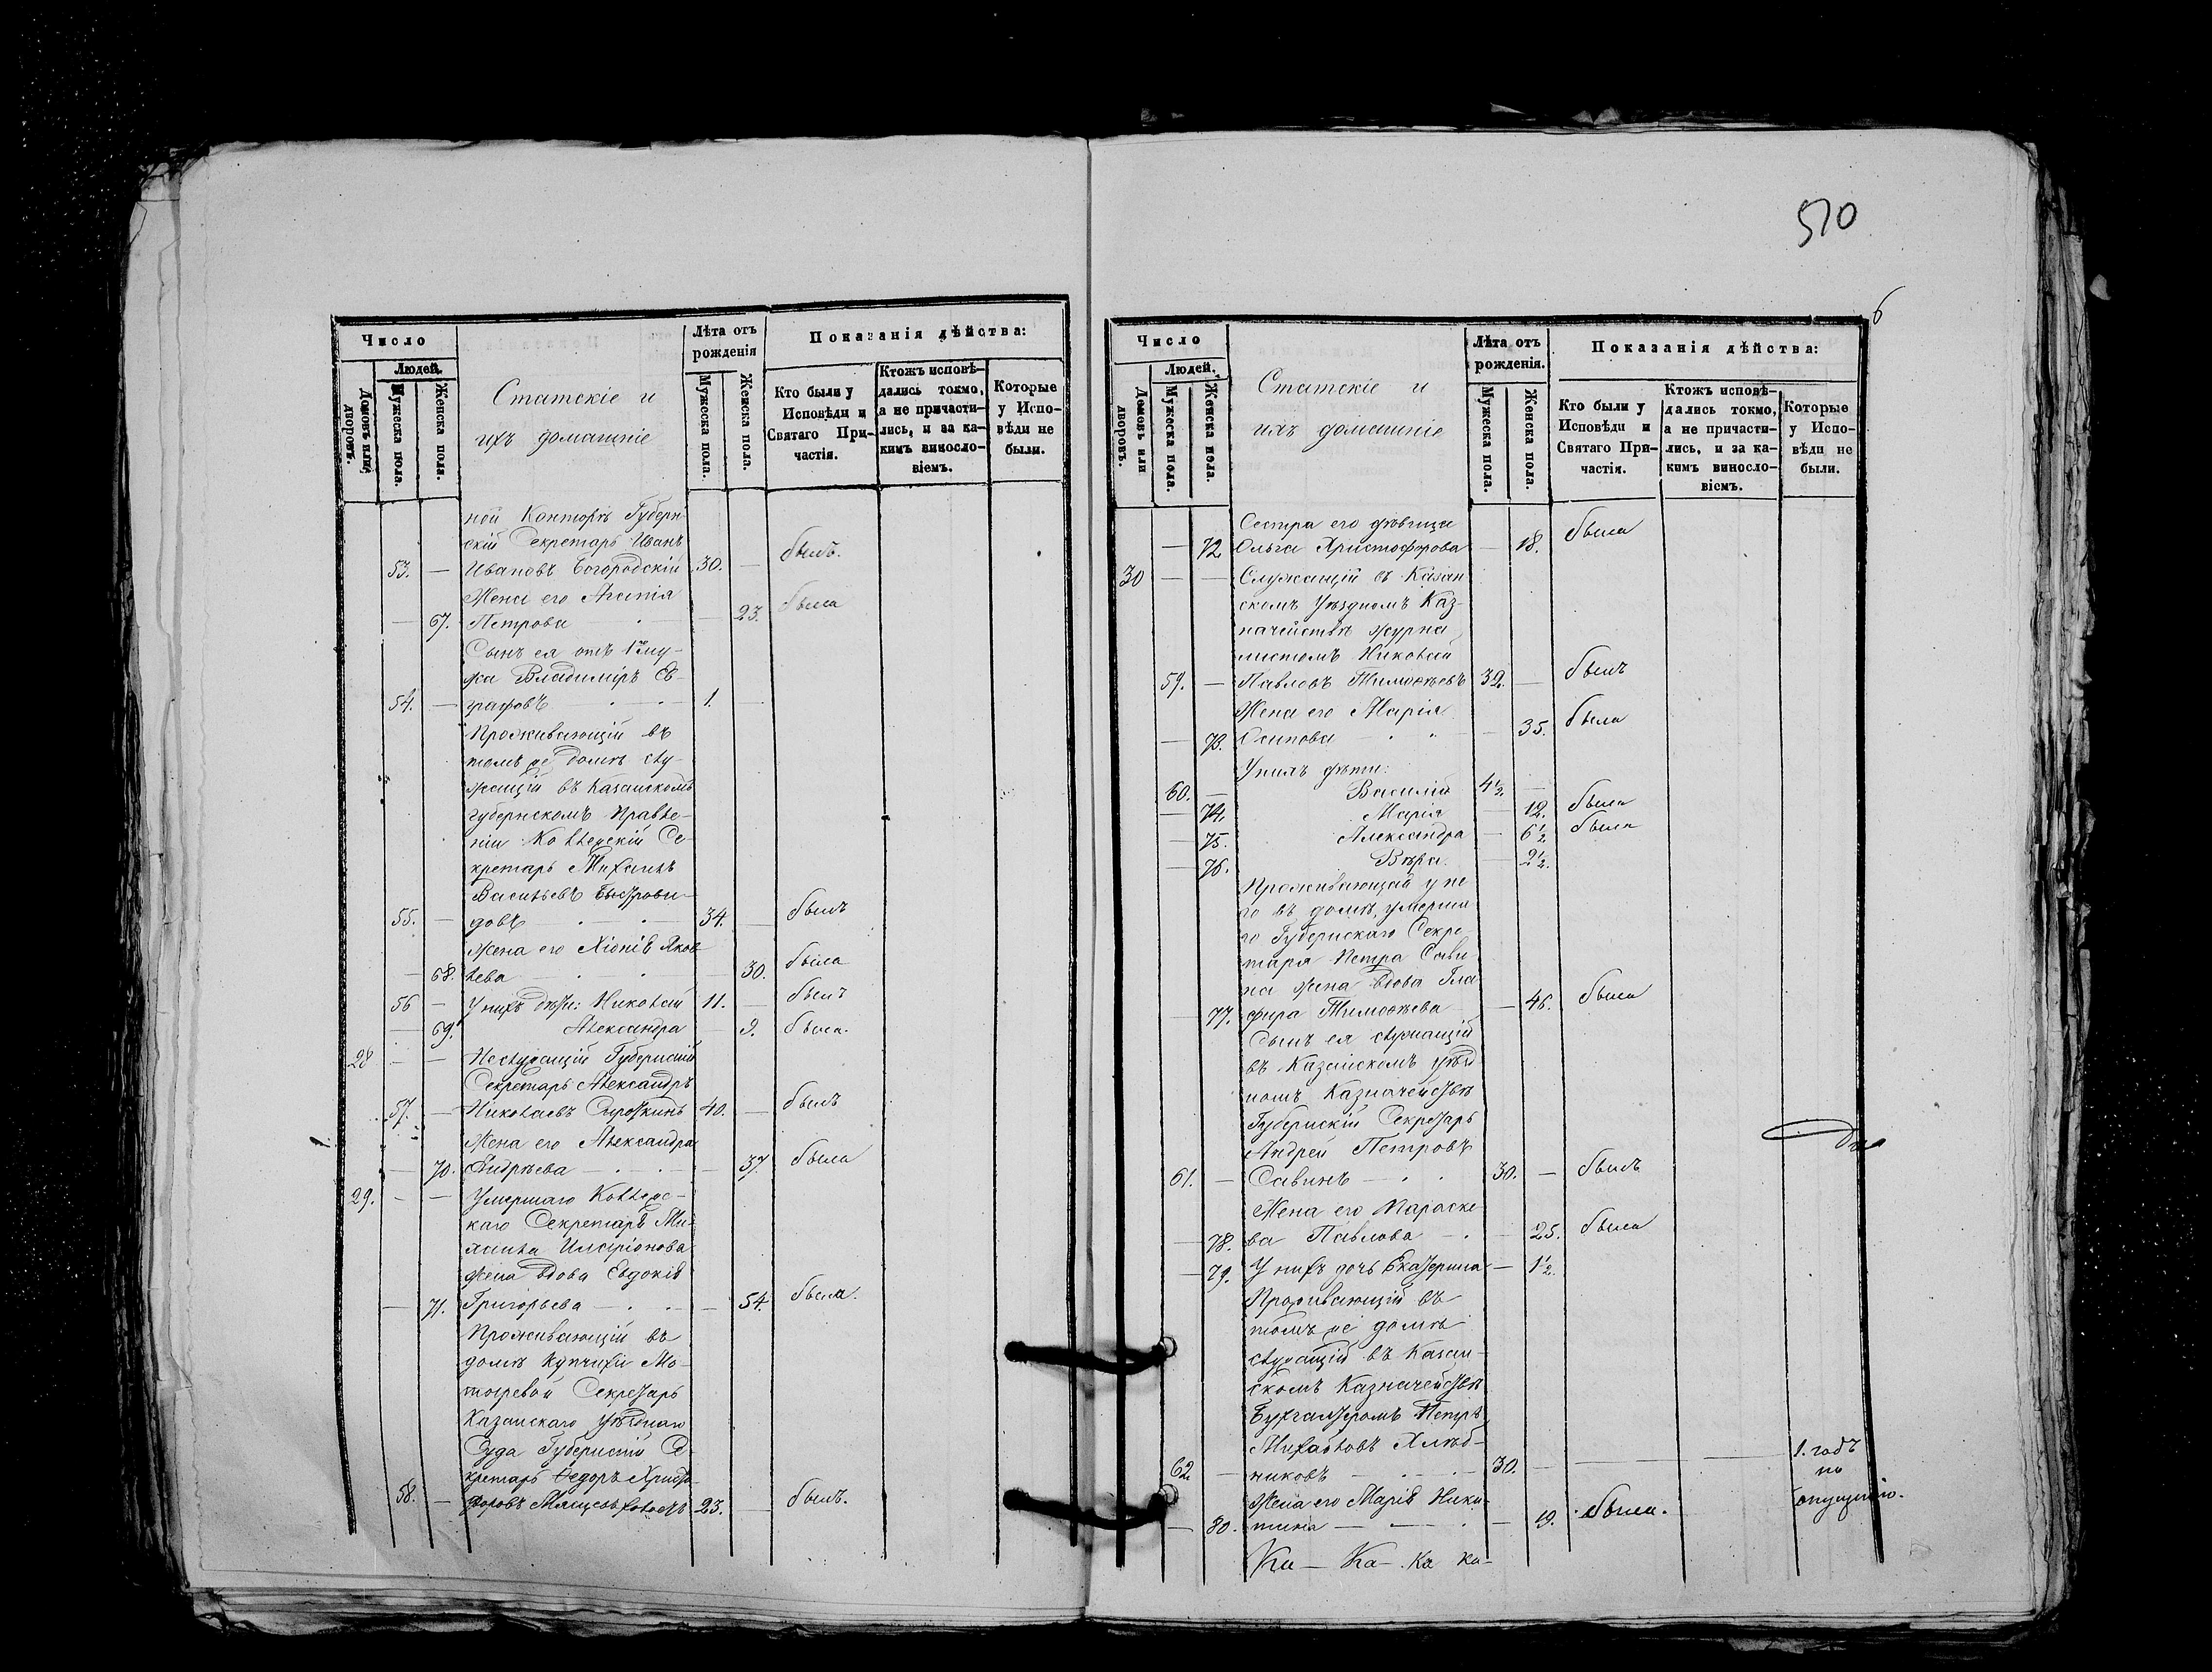 510
6
Число
Людей.
Домовъ или дворовъ.
Мужеска пола.
Женска пола.
Статскіе и
ихъ домашніе
Лѣта отъ
рожденія
Мужеска пола.
Женска пола.
Показанія дѣйства:
Кто были у
Исповѣди и
Святаго При-
частія.
Ктожъ исповѣ-
дались токмо,
а не причасти-
лись, и за ка-
кимъ винос­ло-
віемъ.
Которые
у Испо-
вѣди не
были.
ной Конторѣ Губерн
скій Секретарь Иванъ
53. — Ивановъ Богородскій 30. — былъ.
Жена его Агапія
— 67. Петрова — 23. была
Сынъ ея отъ 1го му-
жа Владиміръ Ев-
54. — графовъ 1.
Проживающій въ
томъ же домѣ слу-
жащій въ Казанскомъ
губернскомъ Правле-
ніи Коллежскій Се-
кретарь Михаилъ
Васильевъ
55. — довъ 34. — былъ
Жена его Хіонія Яков
— 68. лева — 30. была
56 — У нихъ дѣти: Николай 11. — былъ
— 69. Александра — 9. была.
28 — — Неслужащій Губернскій
Секретарь Александръ
57. — Николаевъ Сыроткинъ 40. — былъ
Жена его Александра
— 70. Андрѣева — 37. была
29. — — Умершаго Коллежс-
каго Секретаря Ми-
хаила Иларіонова
жена вдова Евдокія
— 71. Григорьева — 54. была.
Проживающій въ
домѣ купчихи Мо-
Секретарь
Казанскаго уѣзднаго
Суда Губернскій Се-
кретарь Ѳедоръ Христо
58. — форовъ 23. — былъ.
Число
Людей.
Домовъ или дворовъ.
Мужеска пола.
Женска пола.
Статскіе и
ихъ домашніе
Лѣта отъ
рожденія.
Мужеска пола.
Женска пола.
Показанія дѣйства:
Кто были у
Исповѣди и
Святаго При-
частія.
Ктожъ исповѣ-
дались токмо,
а не причасти-
лись, и за ка-
кимъ винос­ло-
віемъ.
Которые
у Испо-
вѣди не
были.
Сестра его дѣвица
— 72 Ольга Христофорова — 18. была
30 — — Служащій въ Казан
скомъ Уѣздномъ Каз-
начействѣ журна
листомъ Николай
59. — Павловъ Тимоѳѣевъ 32. — былъ
Жена его Марія
— 73. Осипова — 35. была
У нихъ дѣти:
60. — Василій 4½ —
— 74. Марія — 12. была
— 75. Александра — 6½ была
— 76. Вѣра. — 2½.
Проживающая у не
го въ домѣ, умерша
го Губернскаго Секре-
таря Петра Сави
на жена вдова Гла
— 77. фира Тимоѳѣева — 46. была
Сынъ ея служащій
въ Казанскомъ уѣзд
номъ Казначействѣ
Губернскій Секретарь
Андрей Петровъ
61. — Савинъ 30. — былъ
Жена его Параске
— 78. ва Павлова — 25. была
— 79. У нихъ дочь Екатерина — 1½.
Проживающій въ
томъ же домѣ
служащій въ Казан-
скомъ Казначействѣ
Бухгалтеромъ Петръ
Михайловъ Хлѣб-
62 — никовъ 30. — — — 1. годъ
по
опущенію.
Жена его Марія Ники-
— 80. тина — 19. была.
Ка — Ка — Ка ка-